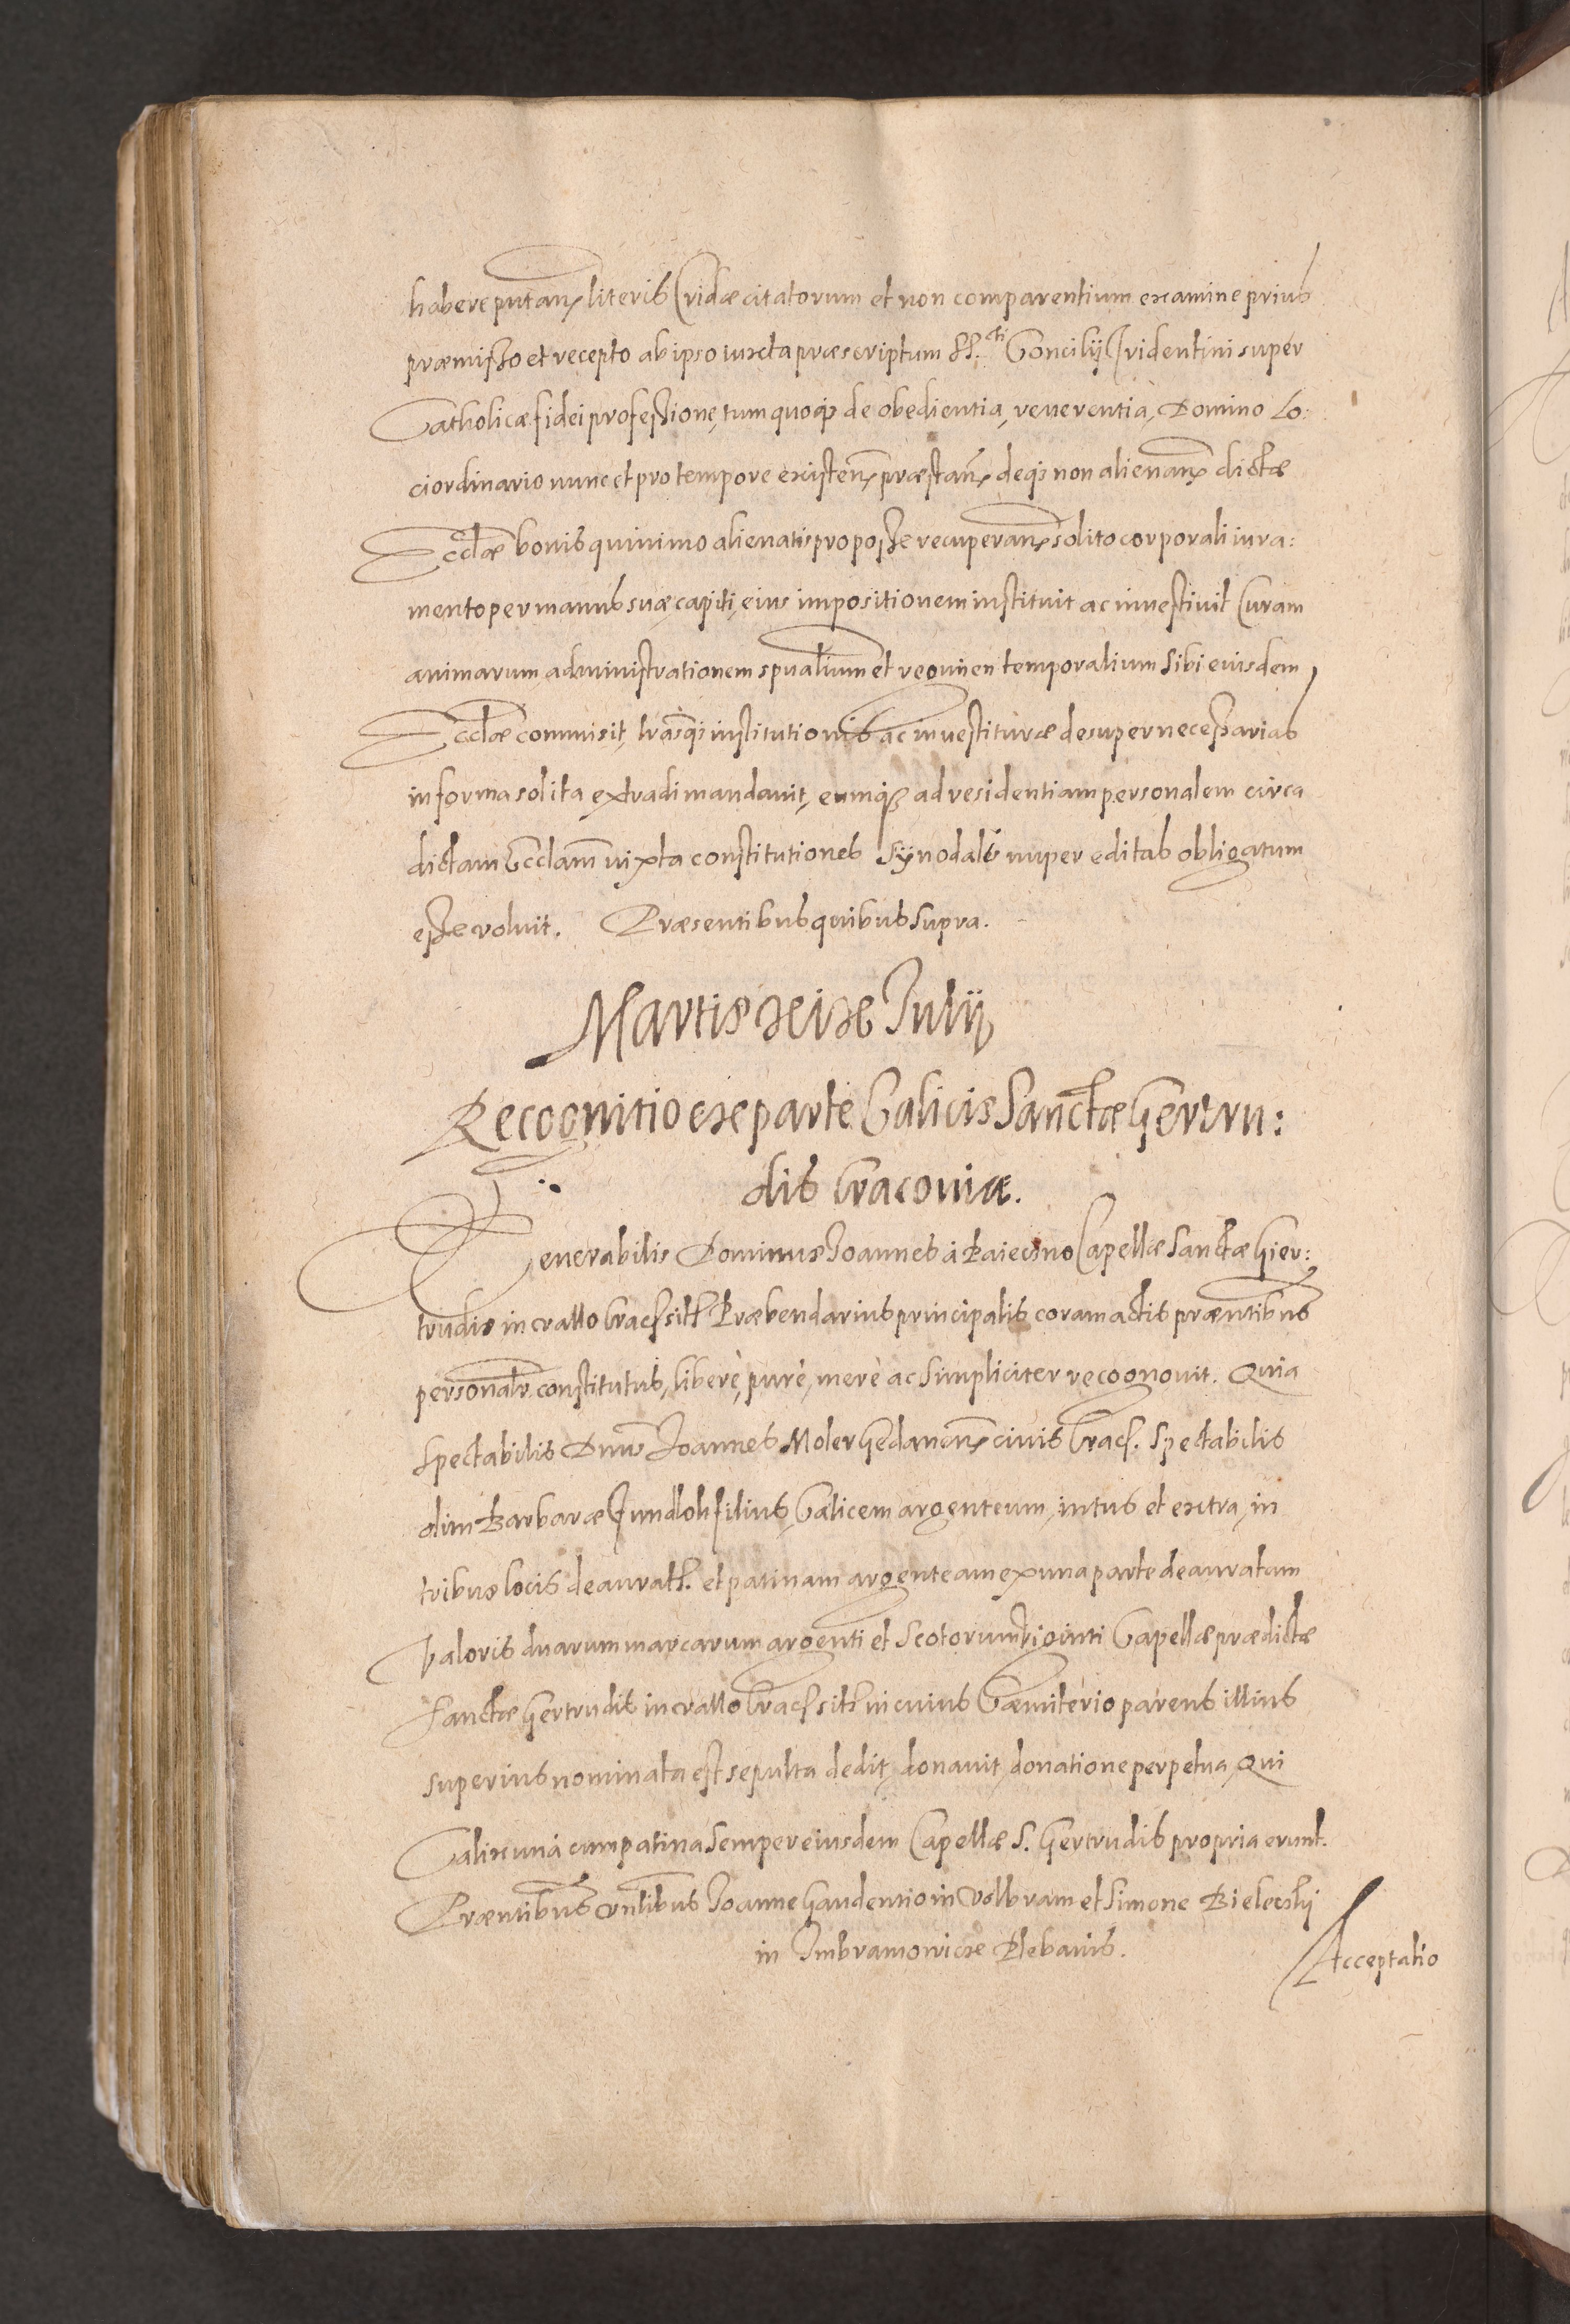 habere putan̄ literis Cridæ citatorum et non comparentium examine prius
præmisso et recepto ab ipso iuxta præscriptum SS.cti Concilij Tridentini super
Catholicæ fidei professione, tum quoq̃ de obedientia, reverentia, Domino Lo:
ci ordinario nunc et pro tempore existen̄ præstan̄ deq̃ non alienan̄ dictæ
Eccłæ bonis quinimo alienatis pro posse recuperan̄ solito corporali iura:
mento per manus suæ, capiti, eius impositionem instituit ac investivit Curam
animarum, administrationem spũalium et regimen temporalium sibi eiusdem
Eccłæ commisit, lrãsq̃ institutionis ac investituræ desuper necessarias
in forma solita extradi mandavit, eumq̃ ad residentiam personalem circa
dictam Eccłam iuxta constitutiones Sÿnodales nuper editas obligatum
esse voluit. Præsentibus quibus supra.
Martis xix Iulij
Recognitio ex parte Calicis Sanctæ Gertru:
dis Cracoviæ.
Venerabilis Dominus Joannes à Baieczno Capellæ Sanctæ Gier:
trudis in vallo Crac̄ sit̄ Præbendarius principalis coram actis præntibus
personalr̄ constitutus, liberè, purè, merè ac simpliciter recognovit. Quia
Spectabilis Dnus Joannes Moler Gedanen̄ civis Crac̄. Spectabilis
olim Barbaræ filius, Calicem argenteum, intus et extra, in
tribus locis deaurat̄. et patinam argenteam ex una parte deauratam
Valoris duarum marcarum argenti et Scotorum triginti Capellæ prædictæ
Sanctæ Gertrudis in vallo Crac̄ sit̄ in cuius Cæmiterio parens illius
superius nominata est sepulta dedit, donavit, donatione perpetua, Qui
Calix unà cum patina semper eiusdem Capellæ S. Gertrudis propria erunt.
Præntibus vnłibus Joanne Gaudentio in Volbram et Simone Bielecskij
in Imbramowicze Plebanis.
Acceptatio